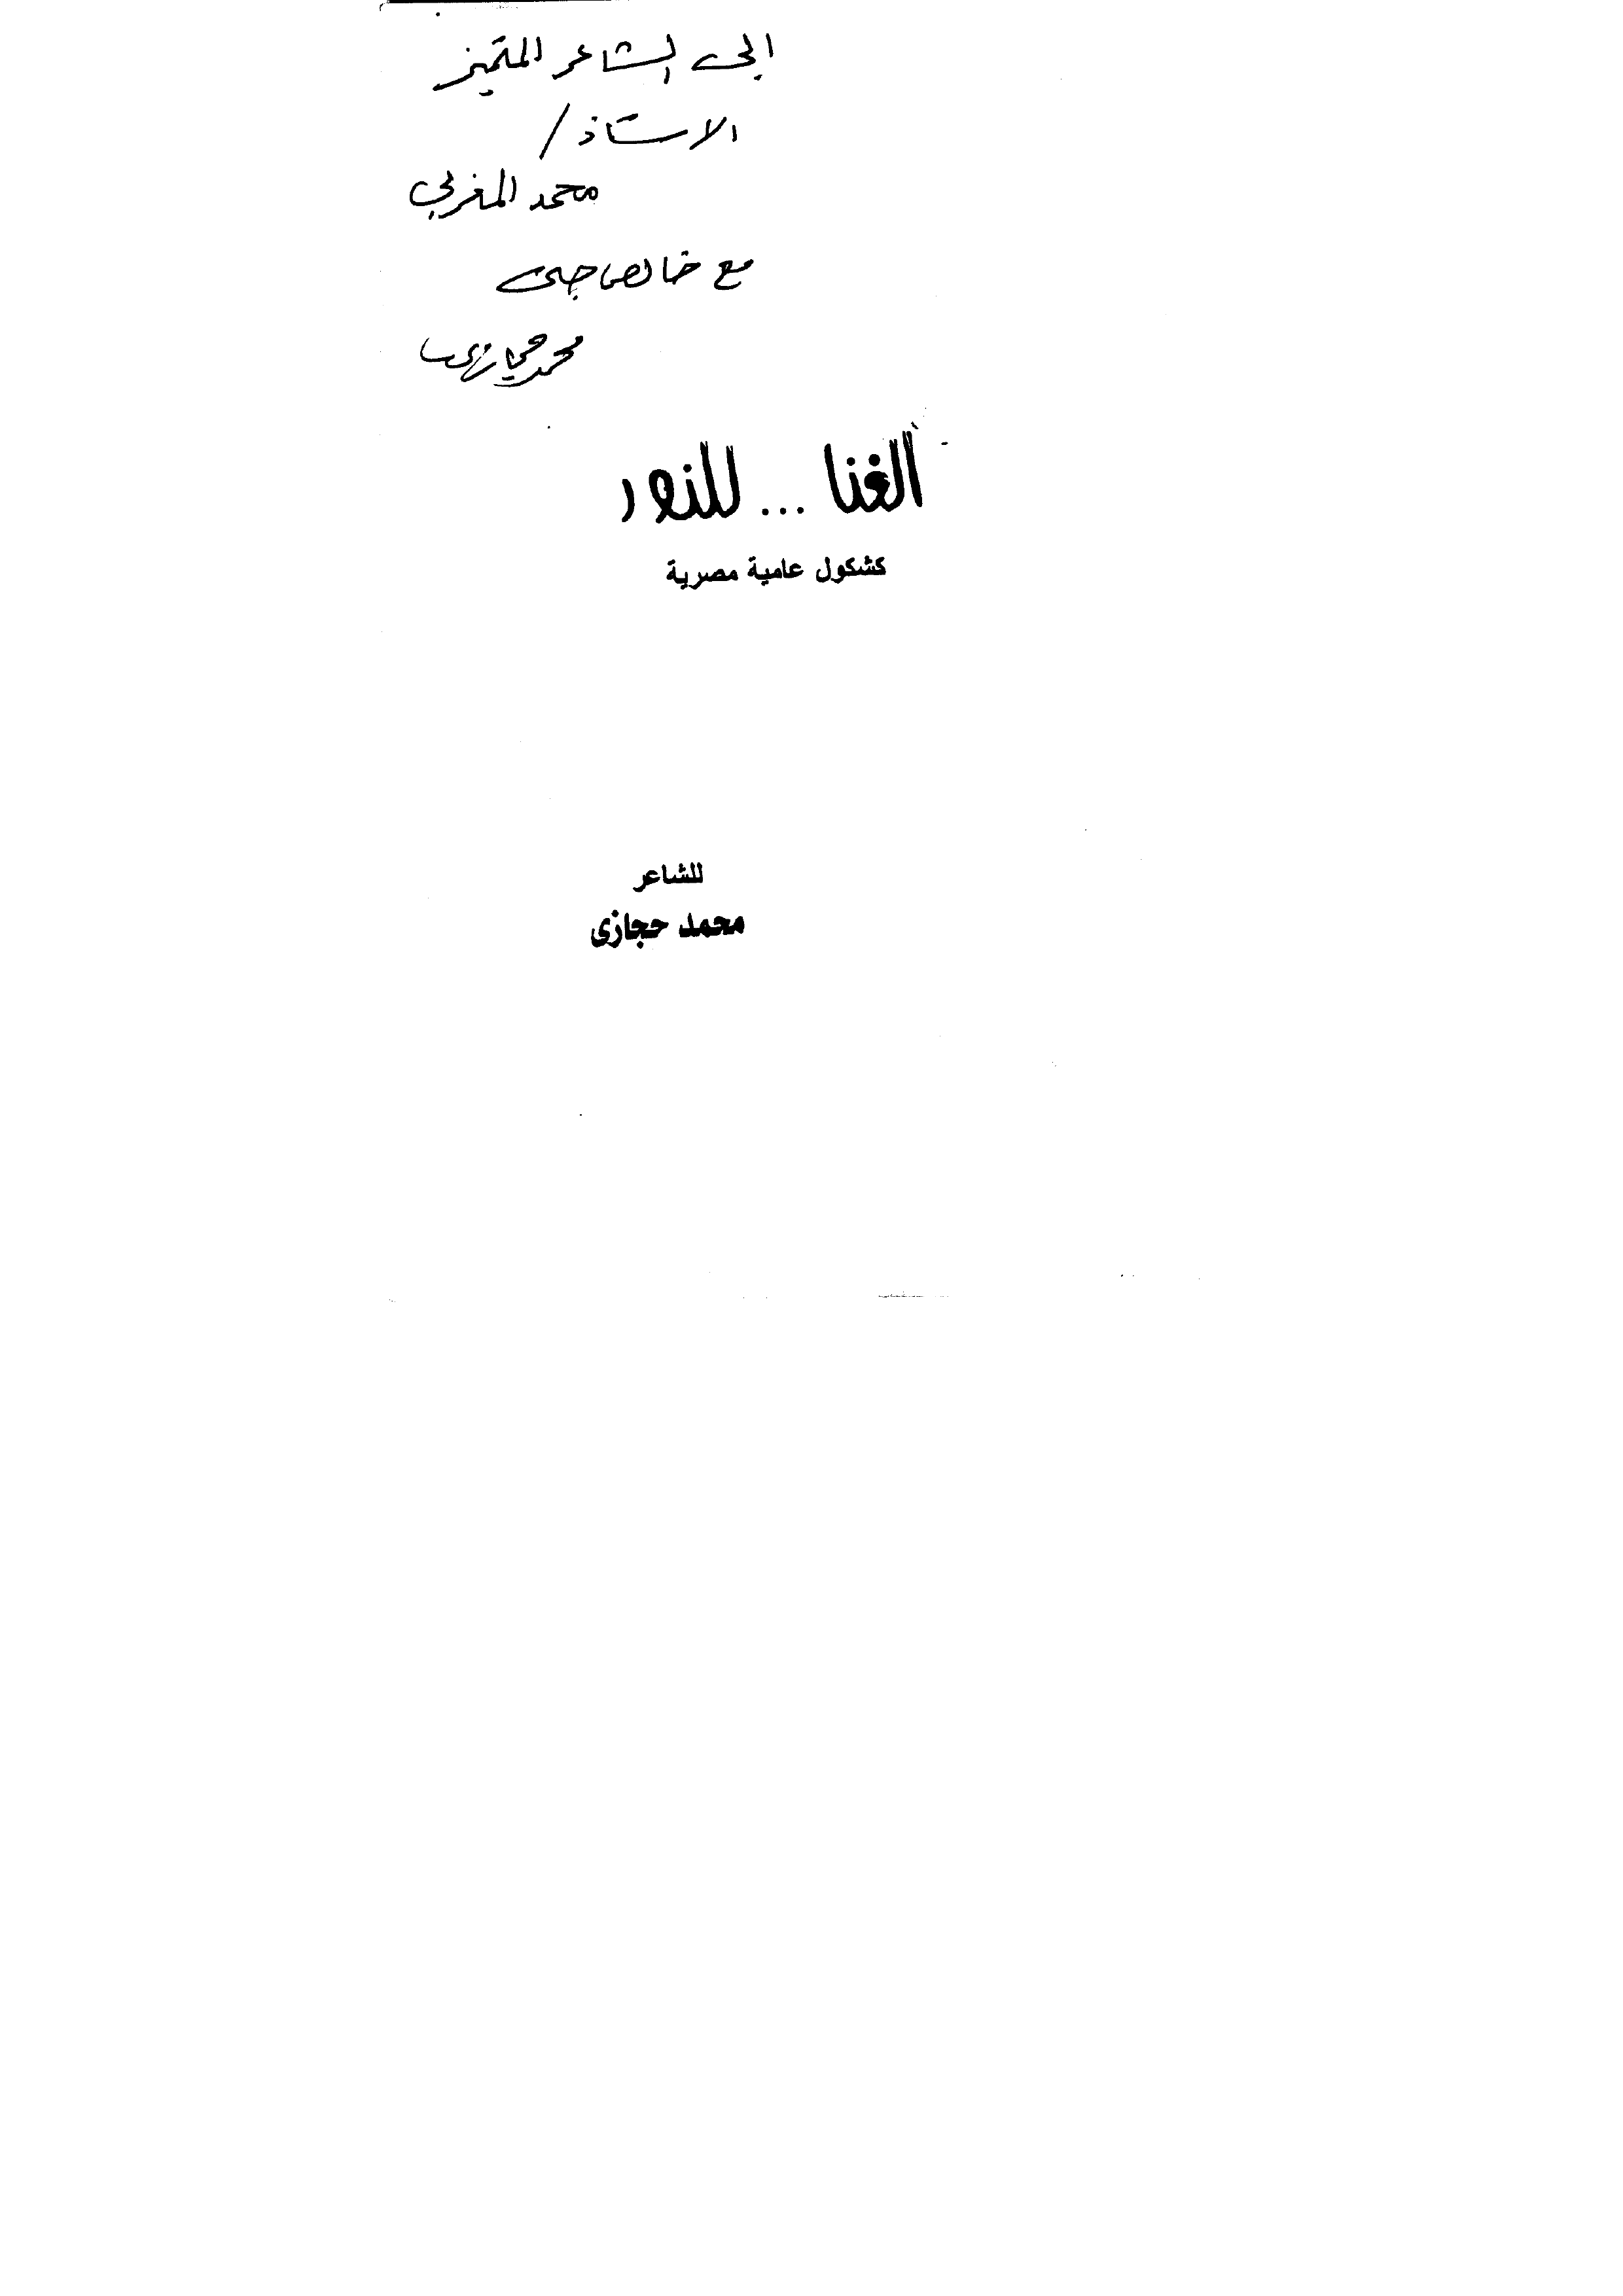 الى الشاعر المتميز
الاستاذ /
محمد المغربي
مع خالص حبى
محمد حجازى
الغنا ... للنور
كشكول عامية مصرية
للشاعر
محمد حجازى